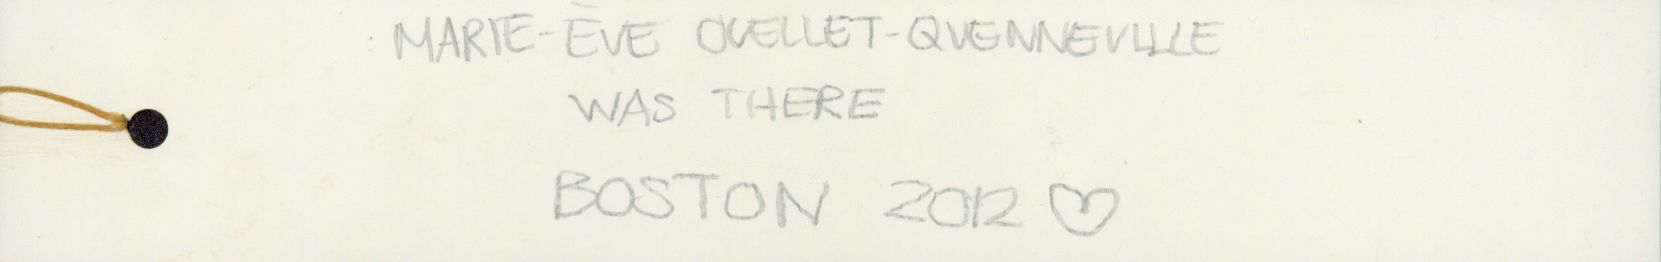 MARIE-ÈVE OUELLET-QUENNEVILLE
WAS THERE
BOSTON 2012 ♡